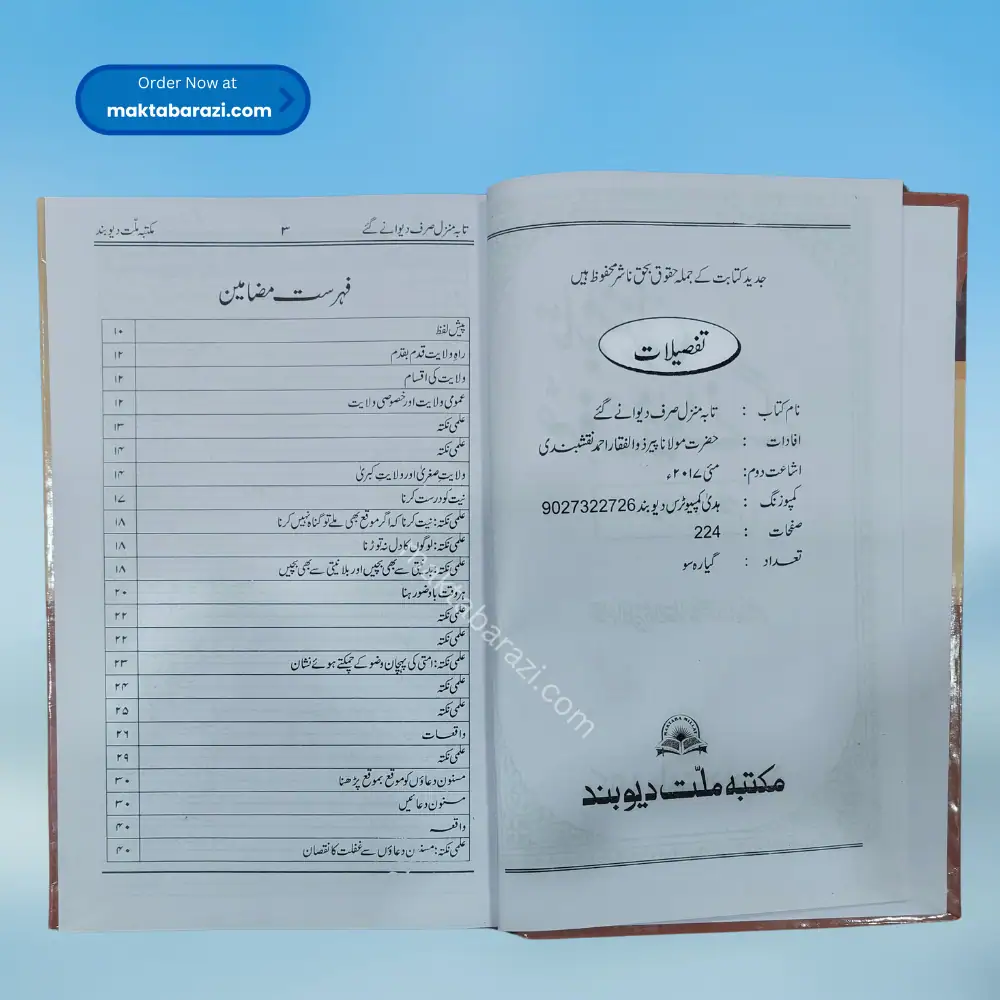 Order Now at
maktabarazi.com
جدید کتابت کے جملہ حقوق بحق ناشر محفوظ ہیں
تفصیلات
نام کتاب : تا بہ منزل صرف دیوانے گئے
افادات : حضرت مولانا پیر ذوالفقار احمد نقشبندی
اشاعت دوم: مئی ۲۰۱۷ء
کمپوزنگ : ہدیٰ کمپیوٹرس دیوبند 9027322726
صفحات : 224
تعداد : گیارہ سو
MAKTABA MILLAT
مکتبہ ملّت دیوبند
تا بہ منزل صرف دیوانے گئے ۳ مکتبہ ملّت دیوبند
فہرست مضامین
پیش لفظ ۱۰
راہِ ولایت قدم بقدم ۱۲
ولایت کی اقسام ۱۲
عمومی ولایت اور خصوصی ولایت ۱۲
علمی نکتہ ۱۳
علمی نکتہ ۱۴
ولایتِ صغریٰ اور ولایتِ کبریٰ ۱۴
نیت کو درست کرنا ۱۷
علمی نکتہ: نیت کرنا کہ اگر موقع بھی ملے تو گناہ نہیں کرنا ۱۸
علمی نکتہ: لوگوں کا دل نہ توڑنا ۱۸
علمی نکتہ: بدنیتی سے بھی بچیں اور بلا نیتی سے بھی بچیں ۱۸
ہر وقت باوضو رہنا ۲۰
علمی نکتہ ۲۲
علمی نکتہ ۲۲
علمی نکتہ: امتی کی پہچان وضو کے چمکتے ہوئے نشان ۲۳
علمی نکتہ ۲۴
علمی نکتہ ۲۵
واقعات ۲۶
علمی نکتہ ۲۹
مسنون دعاؤں کو موقع بموقع پڑھنا ۳۰
مسنون دعائیں ۳۰
واقعہ ۴۰
علمی نکتہ: مسنون دعاؤں سے غفلت کا نقصان ۴۰
maktabarazi.com